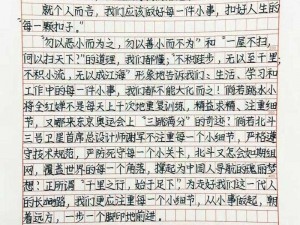 就个人而言，我们应该做好每一件小事，扣好人生的
每一颗扣子。"
"勿以恶小而为之，勿以善小而不为"和"一屋不扫，
何以扫天下？"的道理，我们都懂；"不积跬步，无以至千里；
不积小流，无以成江海"形象地告诉我们：生活、学习和
工作中的每一件小事，我们都不能大化而之！倘若跳水小
将全红婵不是每天上千次地重复训练，精益求精、注重细
节，又哪来东京奥运会上"三跳满分"的奇迹！倘若北斗
三号卫星首席总设计师谢军不注重每一个小细节，严格遵
守技术规范，严防死守每一个小关卡，北斗又怎会如期组
网，覆盖世界的每一个角落，撑起为中国人导航的瑰丽梦
想？正所谓"千里之行，始于足下"为走好我们这一代人
的长路，我们更应注重每一个小细节，从小事做起，朝
着远方，一步一个脚印地前进。